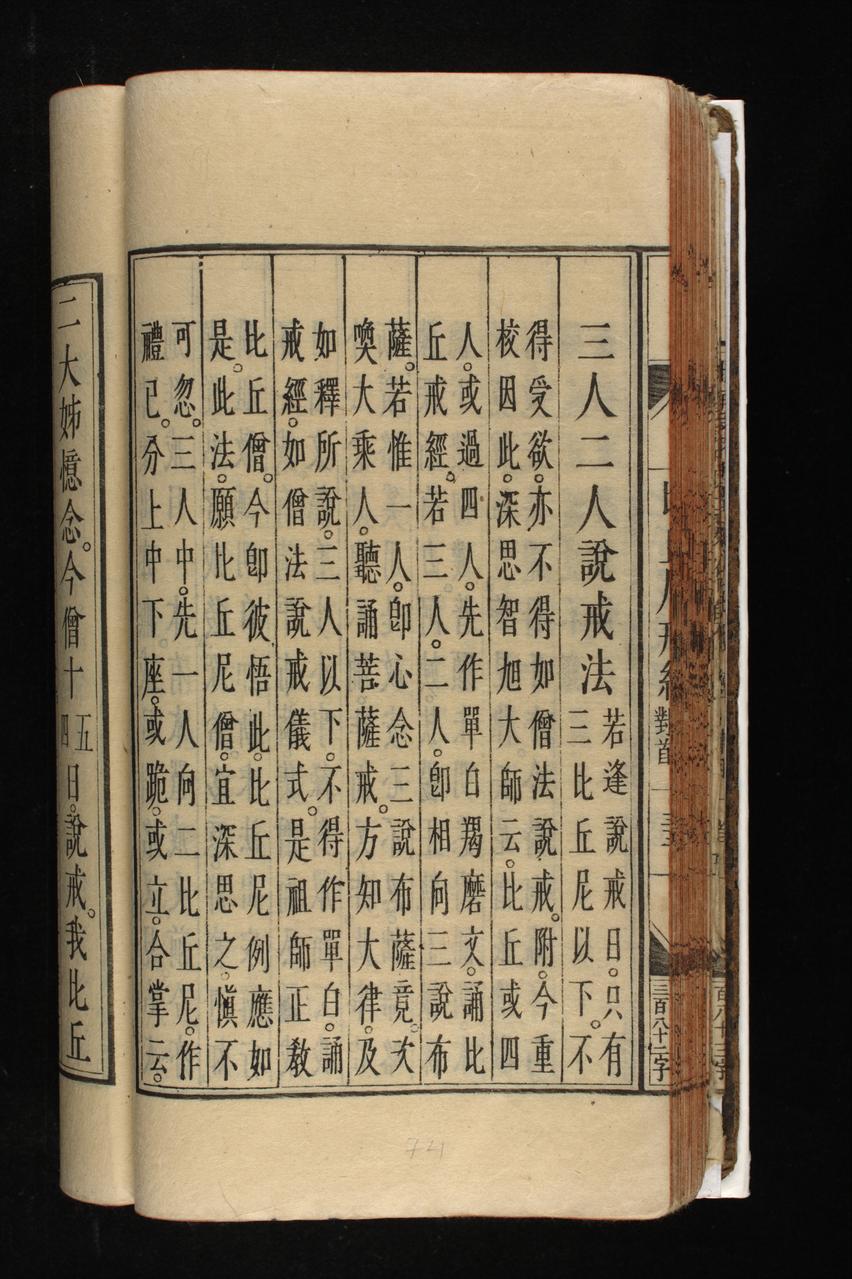 三人二人說戒法
若逢說戒日。只有
三比丘尼以下。不
得受欲。亦不得如僧法說戒。附。今重
校因此。深思智旭大師云。比丘或四
人。或過四人。先作單白羯磨文。誦比
丘戒經。若三人。二人。卽相向三說布
薩。若惟一人。卽心念三說布薩竟。次
喚大乘人。聽誦菩薩戒。方知大律。及
如釋所說。三人以下。不得作單白。誦
戒經。如僧法說戒儀式。是祖師正敎
比丘僧。今卽彼悟此。比丘尼例應如
是。此法。願比丘尼僧。宜深思之。愼不
可忽。三人中。先一人向二比丘尼。作
禮已。分上中下座。或跪。或立。合掌云。
二大姊憶念。今僧十
五
四
日。說戒。我比丘
對首
三百八十二字